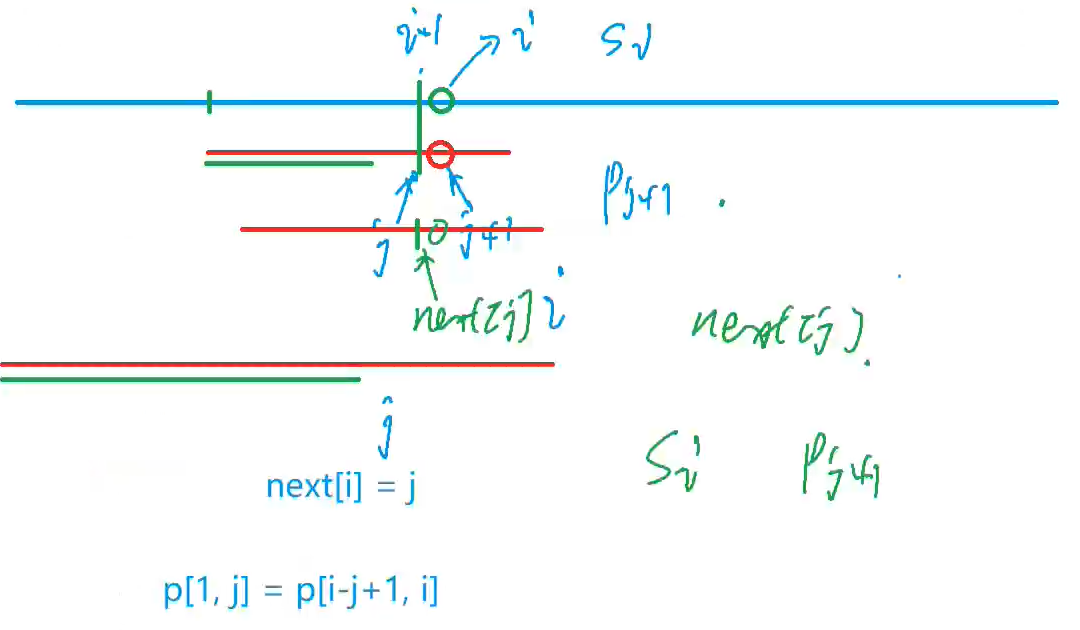 i-1 i Si
Pj+1
j j+1
next[j] i next[j]
j
Si Pj+1
next[i] = j
p[1, j] = p[i-j+1, i]